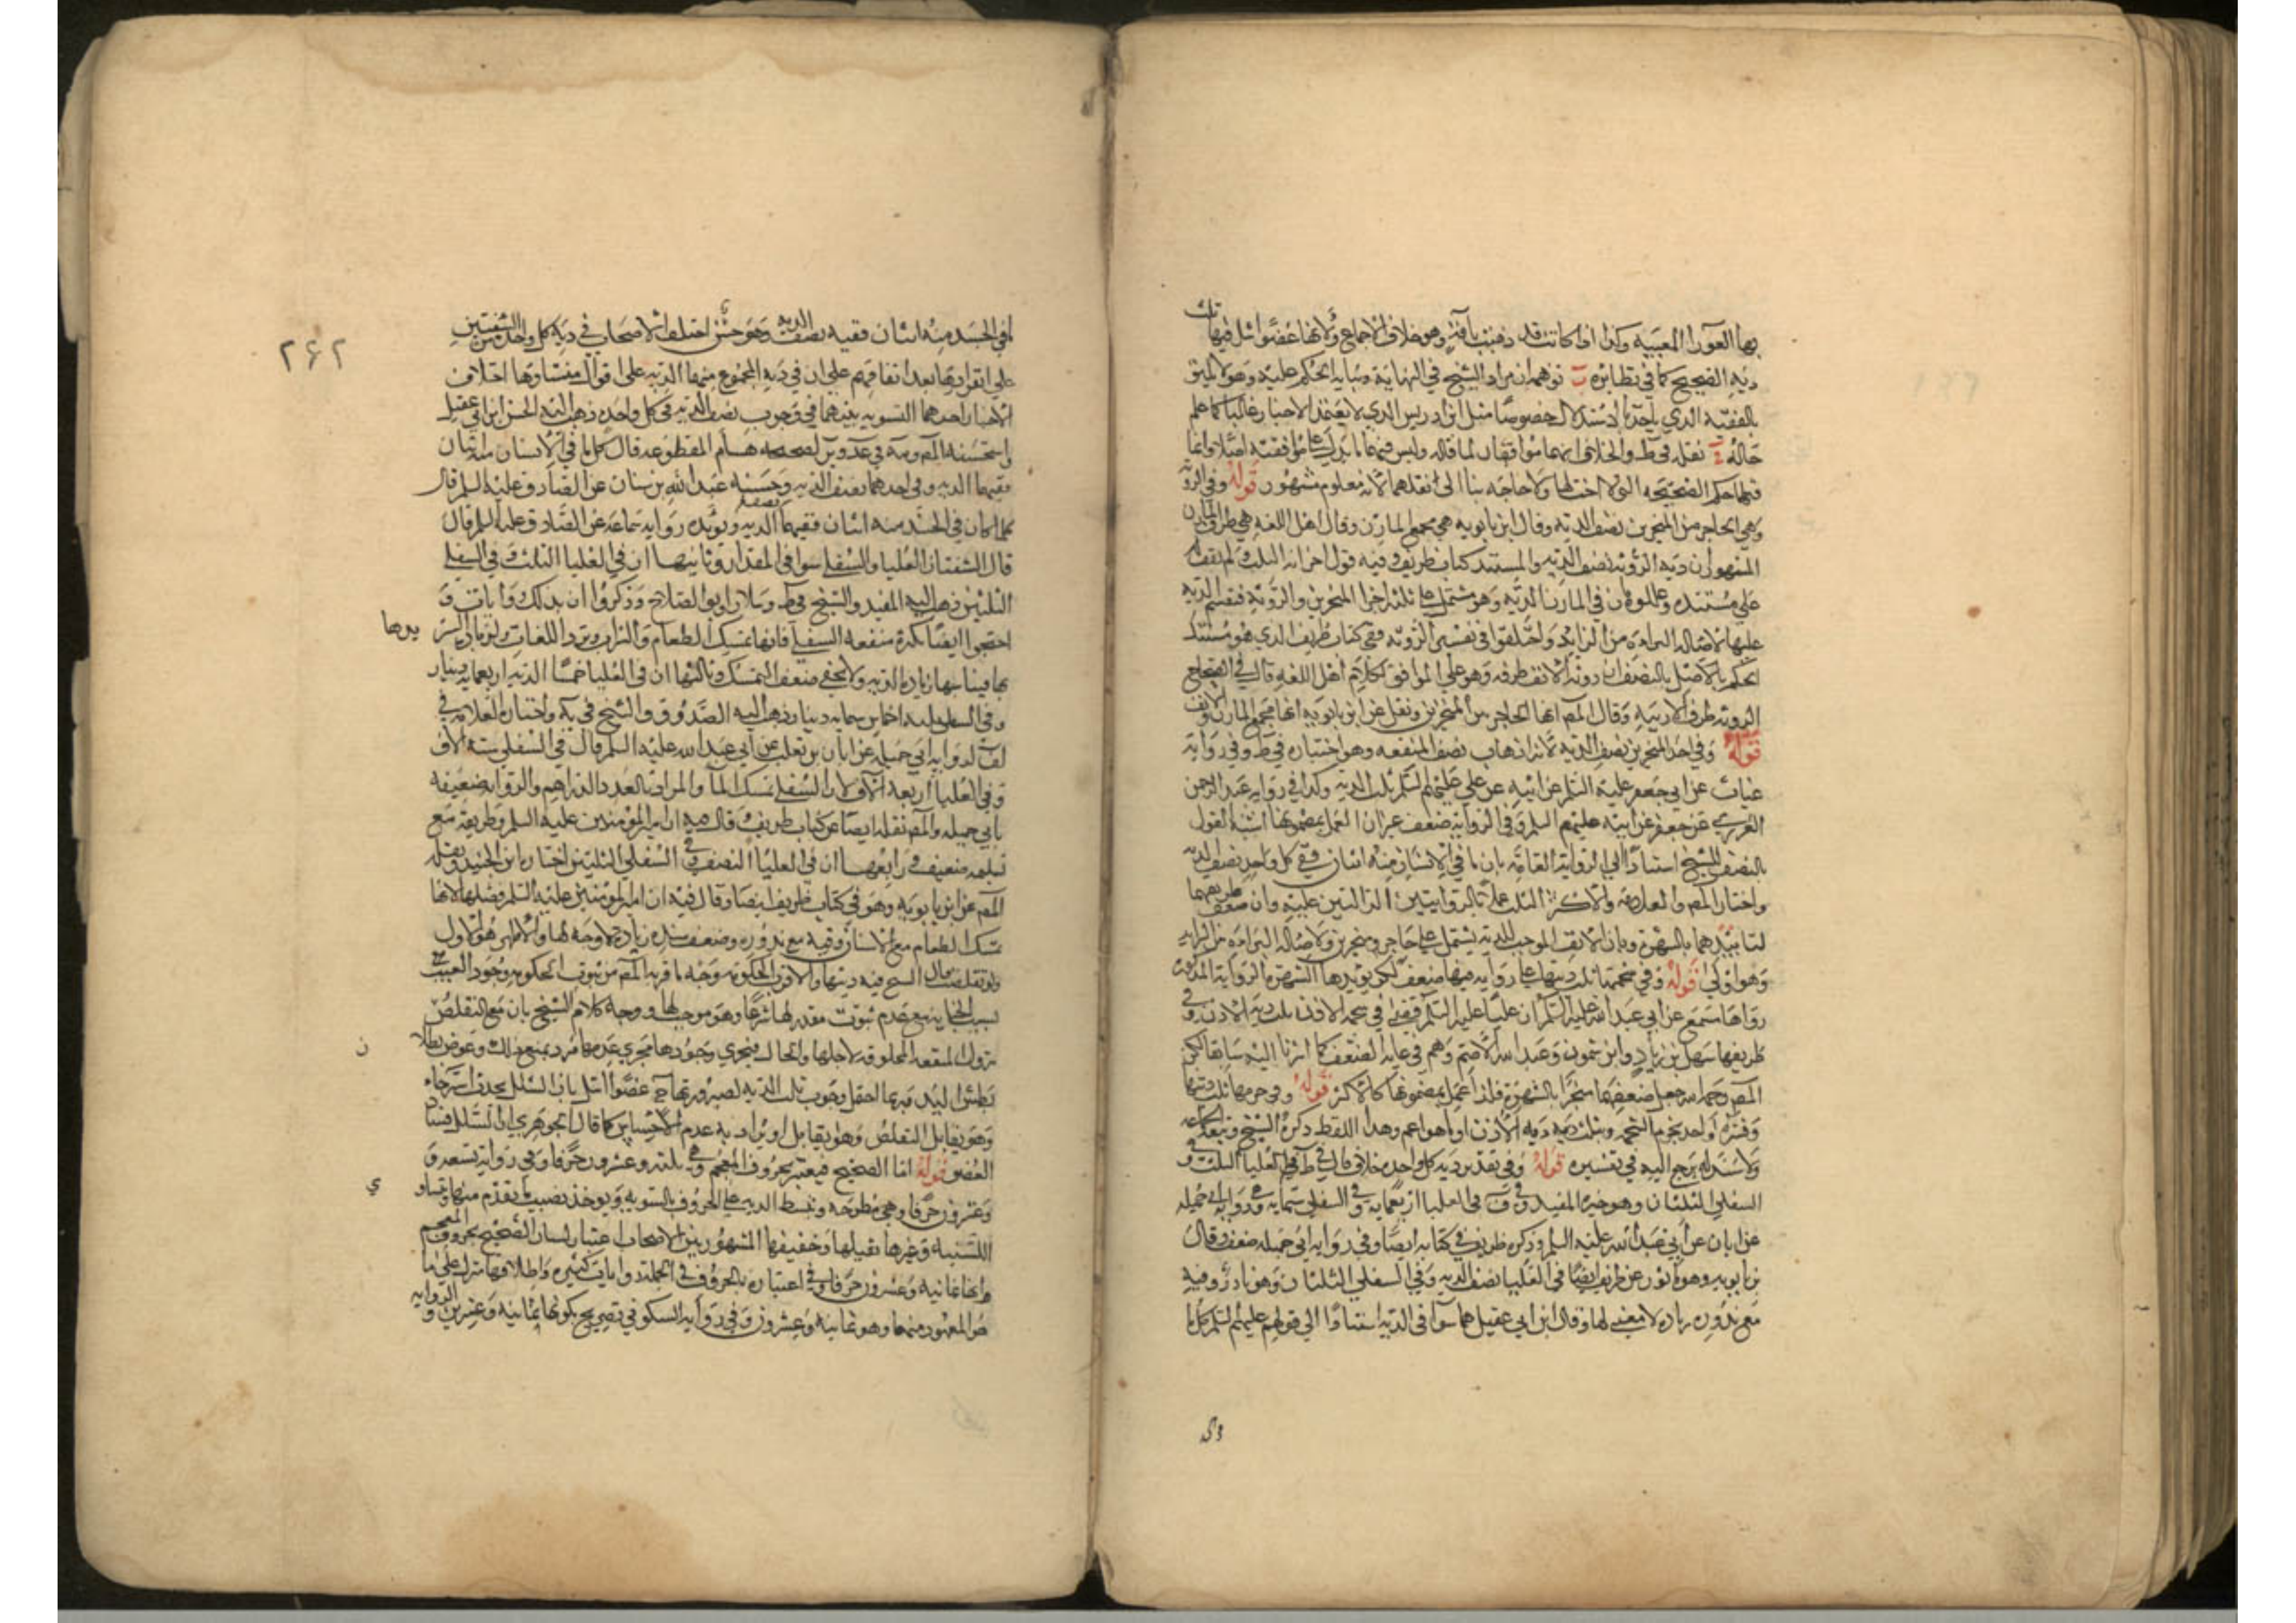 بها العوراء المعيبة وكذا اذا كانت قد ذهبت بآفة وهو خلاف الاجماع ولانها عضو اشل ففيها ثلث
دية الصحيح كما في نظائره ت توهم ان مراد الشيخ في النهاية وبيانه الحكم عليه وهو لا يليق
بالفقيه الذي يأخذ بالاستدلال خصوصا مثل ابن ادريس الذي لا يعتمد الاخبار غالبا كما علم
حاله نقله في ط والخلاف انهما موافقان لما قاله وليس فيهما ما يدل على موافقته اصلا وانما
فيهما حكم الصحيحة التي لا ولا حاجة بنا الى نقلهما لانه معلوم مشهور قوله وفي الروثة
وهي الحاجز من المنخرين نصف الدية وقال ابن بابويه هي مجمع المارن وقال اهل اللغة هي طرف المارن
المشهور ان دية الروثة نصف الدية والمستند كتاب ظريف وفيه قول اخر انه الثلث ولم يقف
على مستنده وعللوه ان في المارن الدية وهو مشتمل على ثلثة اجزا المنخرين والروثة فتقسم الدية
عليها لاصالة البراءة من الزايد واختلفوا في تفسير الروثة ففي كتاب ظريف الذي هو مستند
الحكم بالاصل بالنصف ان روثة الانف طرفه وهو على الموافق لكلام اهل اللغة قال في الصحاح
الروثة طرف الارنبة وقال المصر انها الحاجز بين المنخرين ونقل عن ابن بابويه انها مجمع المارن والانف
قوله وفي احد المنخرين نصف الدية لانه اذهاب نصف المنفعة وهو اختياره في ط وفي رواية
غياث عن ابي جعفر عليه السلم عن ابيه عن علي عليهم السلم ثلث الدية وكذا في رواية عبد الرحمن
العزرمي عن جعفر عن ابيه عليهم السلم وفي الرواية ضعف غير ان العمل بمضمونها اشبه القول
بالنصف للشيخ استنادا الى الرواية العامة بان ما في الانسان منه اثنان ففي كل واحد نصف الدية
واختار المصر والعلامة والاكثر الثلث عملا بالروايتين الدالتين عليه وان ضعف طريقهما
لتأييدهما بالشهرة وبان الانف الموجب للدية يشتمل على حاجز ومنخرين ولاصالة البراءة من الزايد
وهو اولى قوله وفي شحمتها ثلث ديتها على رواية فيها ضعف لكن يؤيدها الشهرة الرواية المذكورة
رواها مسمع عن ابي عبد الله عليه السلم ان عليا عليه السلم قضى في شحمة الاذن ثلث دية الاذن وفي
طريقها سهل بن زياد وابن شمون وعبد الله الاصم وهم في غاية الضعف كما اشرنا اليه سابقا لكن
المصر رحمه الله جعل ضعفها منجبرا بالشهرة فلذا عمل بمضمونها كالاكثر قوله وفي خرمها ثلث ديتها
وفسره واحد بخرم الشحمة وبثلث دية الاذن او ما هو اعم وهذا اللفظ ذكره الشيخ وتبعه الجماعة
ولا سند له يرجع اليه في تفسيره قوله وفي تقدير دية كل واحدة خلاف قال في ط في العليا الثلث وفي
السفلى الثلثان وهو خيرة المفيد وفي ف في العليا اربعمائة وفي السفلى ستمائة وهي رواية ابي جميلة
عن ابان عن ابي عبد الله عليه السلم وذكره ظريف في كتابه ايضا وفي رواية ابي جميلة ضعف وقال
بن بابويه وهو مأثور عن ظريف ايضا في العليا نصف الدية وفي السفلى الثلثان وهو نادر وفيه
مع ندوره زيادة لا معنى لها وقال ابن ابي عقيل هما سوا في الدية استنادا الى قولهم عليهم السلم كل ما
٢٤٢
في الجسد منه اثنان ففيه نصف الدية وهو حسن اختلف الاصحاب في دية كل واحدة من الشفتين
على انفرادها بعد اتفاقهم على ان في دية المجموع منهما الدية على اقوال منشاؤها اختلاف
الاخبار احدهما التسوية بينهما في وجوب نصف الدية في كل واحدة ذهب اليه الحسن ابن ابي عقيل
واستحسنه المصر وبه في عد وير لصحيحة هشام المقطوعة قال كل ما في الانسان منه اثنان
ففيهما الدية وفي احدهما نصف الدية وحسنة عبد الله بن سنان عن الصادق عليه السلم قال
كلما كان في الجسد منه اثنان ففيهما نصف الدية ويؤيده رواية سماعة عن الصادق عليه السلم قال
قال الشفتان العليا والسفلى سوا في المقدار وثانيها ان في العليا الثلث وفي السفلى
الثلثين ذهب اليه المفيد والشيخ في ط وسلار وابو الصلاح وذكروا ان بذلك روايات و
احتجوا ايضا بكثرة منفعة السفلى فانها تمسك الطعام والشراب وترد اللغات
بها فيناسبها زيادة الدية ولا يخفى ضعف التمسك وثالثها ان في العليا خمسا الدية اربعماية دينار
وفي السفلى ثلثة اخماس ستماية دينار ذهب اليه الصدوق والشيخ في ية واختاره العلامة في
لف لرواية ابي جميلة عن ابان بن تغلب عن ابي عبد الله عليه السلم قال في السفلى ستة الاف
وفي العليا اربعة الاف لان السفلى تمسك الما والمراد بالعدد الدراهم والرواية ضعيفة
بابي جميلة والمصر نقله ايضا عن كتاب ظريف قال فيه ان امير المؤمنين عليه السلم وطريقه مع
ضعيف ورابعها ان في العليا النصف وفي السفلى الثلثين اختاره ابن الجنيد ونقله
المصر عن ابن بابويه وهو في كتاب ظريف ايضا وقال فيه ان امير المؤمنين عليه السلم فضلها لانها
تمسك الطعام مع الاسنان وفيه مع ندوره وضعف سنده زيادة لا وجه لها والاظهر هو الاول
ولو تقلصت قال الشيخ فيه ديتها والاقرب الحكومة وجه ما قربه المصر من ثبوت الحكومة وجود العيب
بسبب الجناية مع عدم ثبوت مقدر لها شرعا وهو موجب لها ووجه كلام الشيخ بان مع التقلص
تزول المنفعة المخلوقة لاجلها والحال فيجري وجودها مجرى عدمها فرد بمنع ذلك
وهو يقابل التقلص وهو يقابل او يراد به عدم الاحساس كما قال الجوهري ان الشلل فساد
العضو قوله اما الصحيح فيعتبر بحروف المعجم وهي ثمانية وعشرون حرفا وفي رواية تسعة و
وعشرون حرفا وهي مطرحة وتبسط الدية على الحروف بالسوية ويوخذ نصيب ما يعدم منها وتساوي
اللسنية وغيرها ثقيلها وخفيفها المشهور بين الاصحاب اعتبار لسان الصحيح بحروف المعجم
وانها ثمانية وعشرون حرفا وفي اعتباره بالحروف في الجملة روايات كثيرة واطلاقها منزل على ما
هو المعهود منها وهو ثمانية وعشرون وفي رواية السكوني تصريح بكونها ثمانية وعشرين و